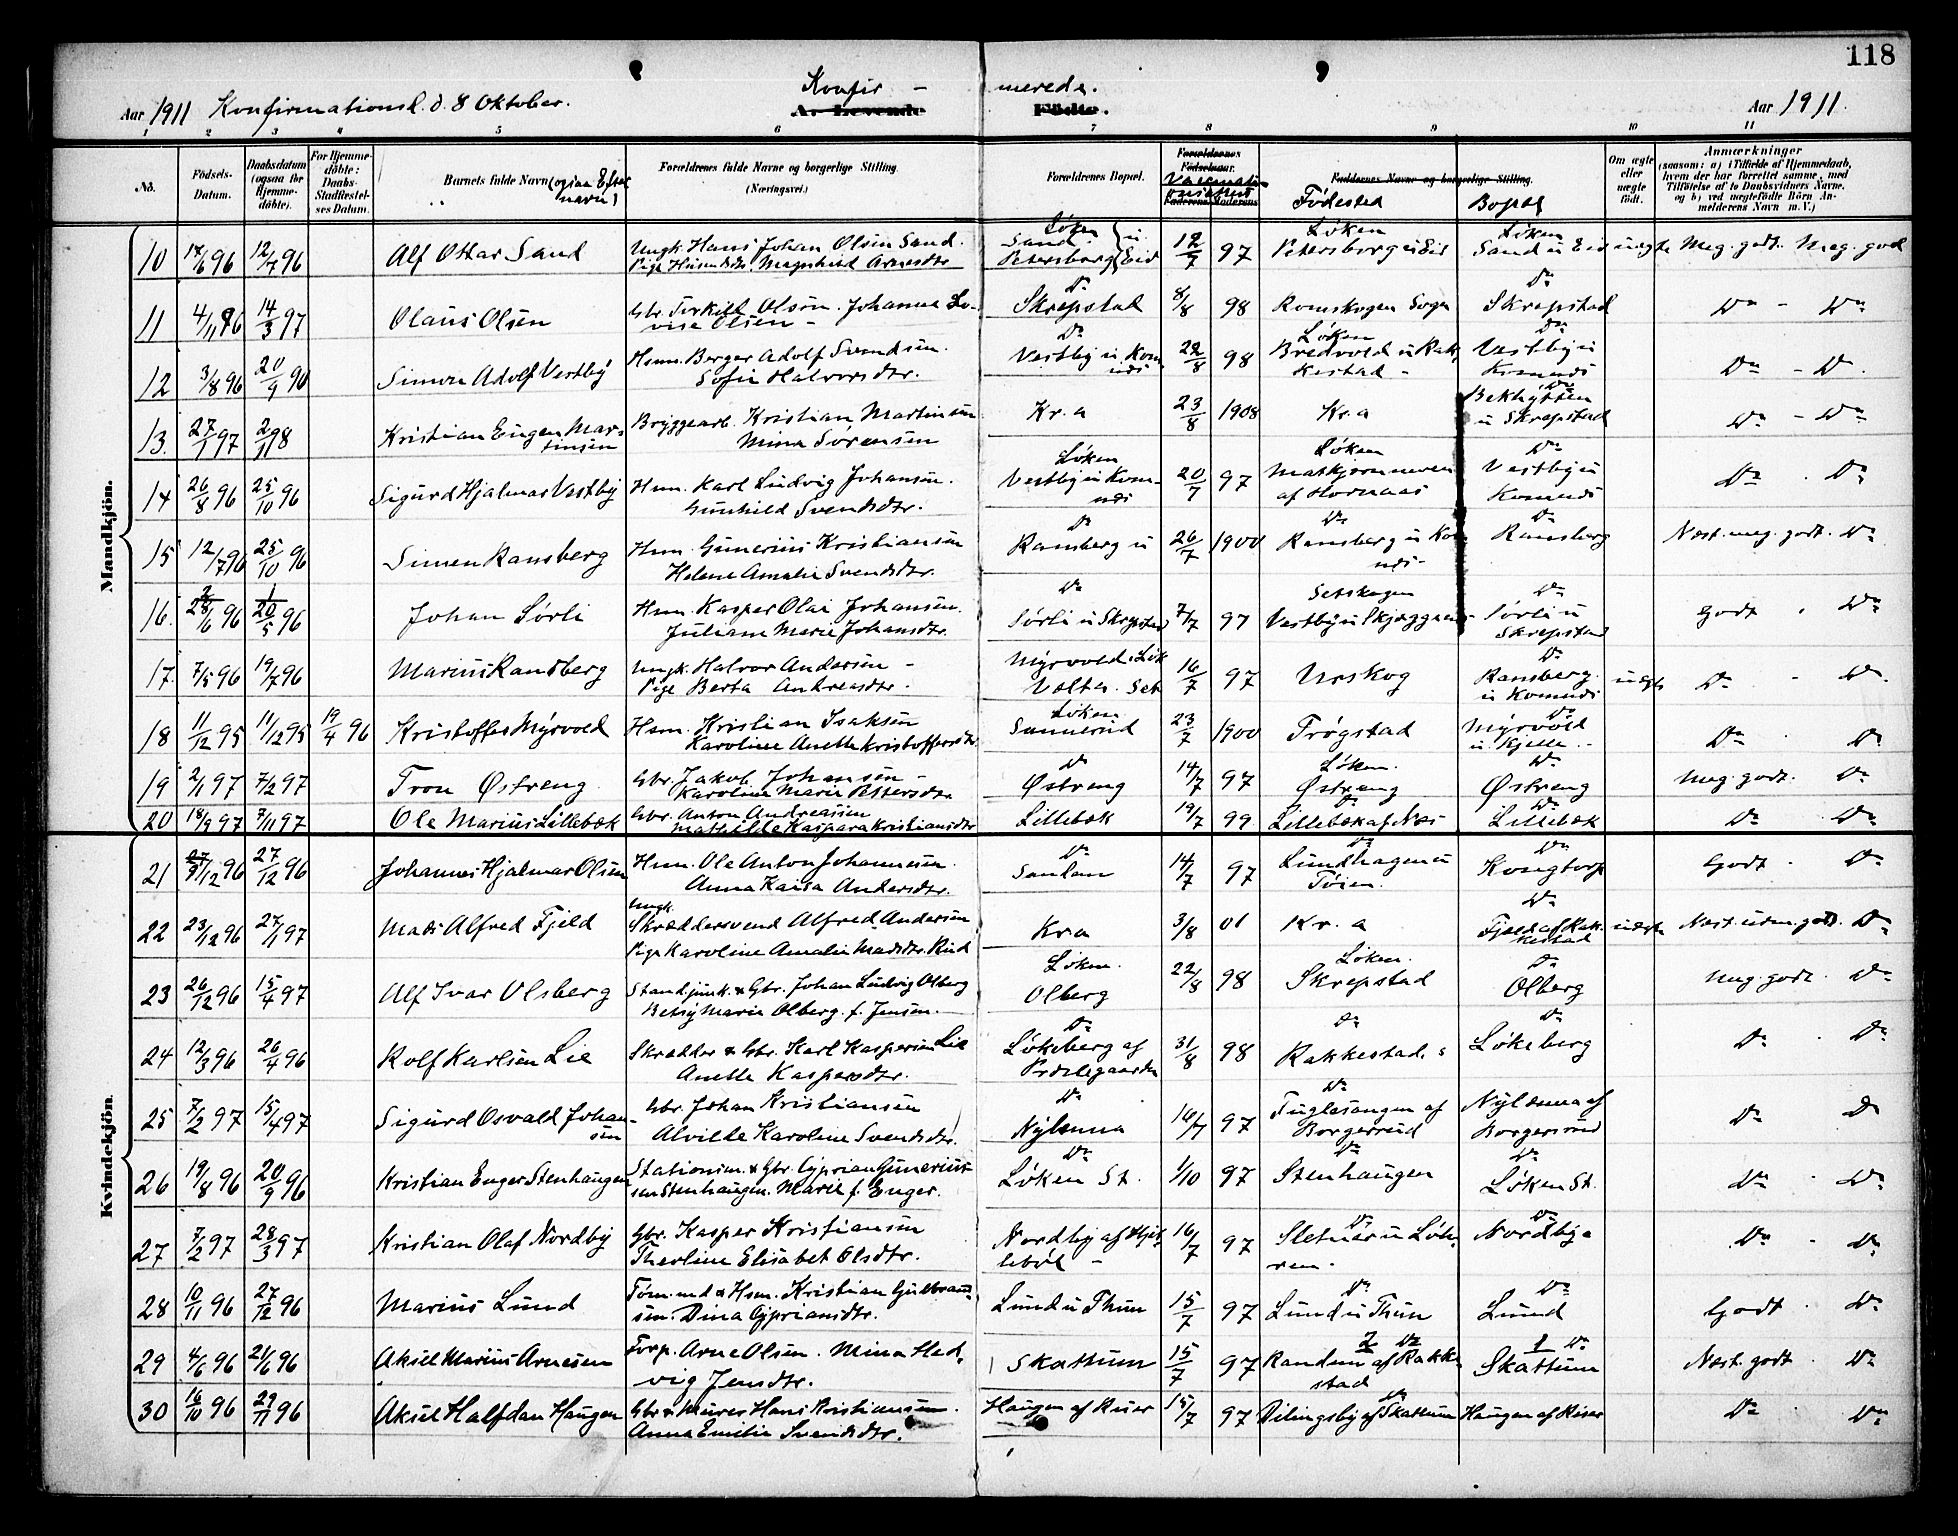 118
Aar 1911 Konfirmationsl. d. 8 Oktober. Konfir - merede. Aar 1911.
A. Levende Fødte.
1 2 3 4 5 6 7 8 9 10 11
No. Födsels-Datum. Daabsdatum (ogsaa for Hjemmedöbte). For Hjemmedöbte: Daabs-Stadfæstelses Datum. Barnets fulde Navn (ogsaa Efternavn) Forældrenes fulde Navne og borgerlige Stilling (Næringsvei.) Forældrenes Bopæl. Forældrenes Födselsaar. Faderens Moderens Vaccinationsattest Faddernes Navne og borgerlige Stilling. Födested Bopæl Om ægte eller uægte födt. Anmærkninger (saasom: a) i Tilfælde af Hjemmedaab, hvem der har forrettet samme, med Tilföielse af to Daabsvidners Navne, og b) ved uægtefödte Börn Anmelderens Navn m. V.)
Mandkjön.
10 14/6 96 12/7 96 Alf Ottar Sand Ungk. Hans Johan Olsen Sand. Pige Husm.dtr. Magnhild Arnesdtr Løken Sand Petersborg u Eid 12/7 97 Løken Petersborg u Eid Løken Sand u Eid uægte Meg. godt. Meg. god
11 4/11 96 14/3 97 Olaus Olsen Gbr. Torkild Olsen. Johanne Lovise Olsen - Do Skrepstad 8/8 98 Romskogen Sogn Do Skrepstad Do - Do
12 3/8 96 20/9 96 Simon Adolf Vestby Hsmn. Berger Adolf Svendsen. Sofie Halvorsdtr. Do Vestby u. Komnæs 22/8 98 Løken Bredvold u Rakkestad - Do Vestby u Komnæs Do - Do.
13. 27/1 97 2/11 98 Kristian Eugen Martinsen Bryggearb. Kristian Martinsen Mina Sørensen Kr.a 23/8 1908 Kr.a Do Bekhytten u Skrepstad Do - Do
14 26/8 96 25/10 96 Sigurd Hjalmar Vestby Hsm. Karl Ludvig Johansen. Gunhild Svendsdtr. Løken Vestby u Komnæs 20/7 97 Løken Matkjernmoen af Hornaas Do Vestby u Komnæs Do . Do
15 12/7 96 25/10 96 Simen Ramsberg Hsm. Gunerius Kristiansen Helene Amalie Svendsdtr. Do Ramsberg u 26/7 1900 Do Ramsberg u Komnæs - Do Ramsberg Næst. meg. godt. Do
16. 28/6 96 20/5 96 Johan Sørli Hsm. Kasper Olai Johansen. Juliane Marie Johansdtr. Do Sørli u Skrepstad 7/7 97 Setskogen Vestby u Do Sørli u Skrepstad Godt . Do
17. 7/5 96 19/7 96 Marius Ramsberg Ungk. Halvor Andersen - Pige Berta Andreasdtr. Myrvold i Løk 16/7 97 Urskog Do Ramsberg u Komnæs uægte Do - Do.
18 11/12 95 11/12 95 19/4 96 Kristoffer Myrvold Hsm. Kristian Isaksen Karoline Anette Kristoffersdtr Løken Sannerud 23/7 1900 Trøgstad Do Myrvold u. Kjelle - Do . Do
19 2/1 97 7/2 97 Tron Østreng Gbr. Jakob Johansen - Karoline Marie Pettersdtr Do Østreng 14/7 97 Løken. Østreng Do Østreng Meg. godt. Do
20 18/9 97 7/11 97 Ole Marius Lillebæk Gbr. Anton Andreassen Mathilde Kaspara Kristiansdtr Lillebæk 19/7 99 Do Lillebæk af Næs Do Lillebæk Do . Do
Kvindekjön.
21 27/12 96 27/12 96 Johannes Hjalmar Olsen Hsm. Ole Anton Johannesen. Anna Kaisa Andersdtr. Do Sandam 14/7 97 Do Lundhagen u Tøien. Do Kongtorp Godt . Do
22 23/12 96 27/1 97 Mads Alfred Fjeld Ungk. Skræddersvend Alfred Andersen Pige Karoline Amalie Madsdtr. Rud Kra 3/8 01 Kr.a Do Fjeld af Rakkestad uægte Næst. uden godt. Do
23 26/12 96 15/4 97 Alf Ivar Olsberg Standjunk. & Gbr. Johan Ludvig Olberg Betsy Marie Olberg. f. Jensen. Løken. Olberg 22/8 98 Løken. Skrepstad Do Olberg Meg. godt. Do
24 12/3 96 26/4 96 Rolf Karlsen Lie Skrædder & Gbr. Karl Kaspersen Lie Anette Kaspersdtr. Do Løkeberg af Prestegaarden 31/8 98 Do Rakkestad. Do Løkeberg Do . Do
25 7/2 97 15/4 97 Sigurd Osvald Johansen Gbr. Johan Kristiansen Alvilde Karoline Svendsdtr. Do Nylænna 16/7 97 Do Fuglesangen af Borgerud Nylænna af Borgersrud Do . Do
26 19/8 96 20/9 96 Kristian Enger Stenhaugen Stationsm. & Gbr. Cyprian Gunerius-sen Stenhaugen. Marie f. Enger. Do Løken St. 1/10 97 Do Stenhaugen Do Løken St. Do . Do
27 7/2 97 28/3 97 Kristian Olaf Nordby Gbr. Kasper Kristiansen Therline Elisabet Olsdtr. Nordby af Hjellebøl - 16/7 97 Do Sletner u Løkeren. Do Nordby Do - Do
28 10/11 96 27/12 96 Marius Lund Tøm.md & Hsm. Kristian Gulbrandsen. Dina Cypriansdtr. Lund u Thun 15/7 97 Do Lund u Thun Do Lund Godt . Do
29 4/6 96 21/6 96 Aksel Marius Arnesen Forp. Arne Olsen. Mina Hedvig Jensdtr. Skattum 15/7 97 2 Do Randem af Rakkestad 1 Do Skattum Næst. godt . Do
30 16/10 96 29/11 96 Aksel Halfdan Haugen Gbr. & Murer Hans Kristiansen. Anna Emilie Svendsdtr. Haugen af Ruser 15/7 97 Do Dilingsby af Skattum Haugen af Riser Do . Do